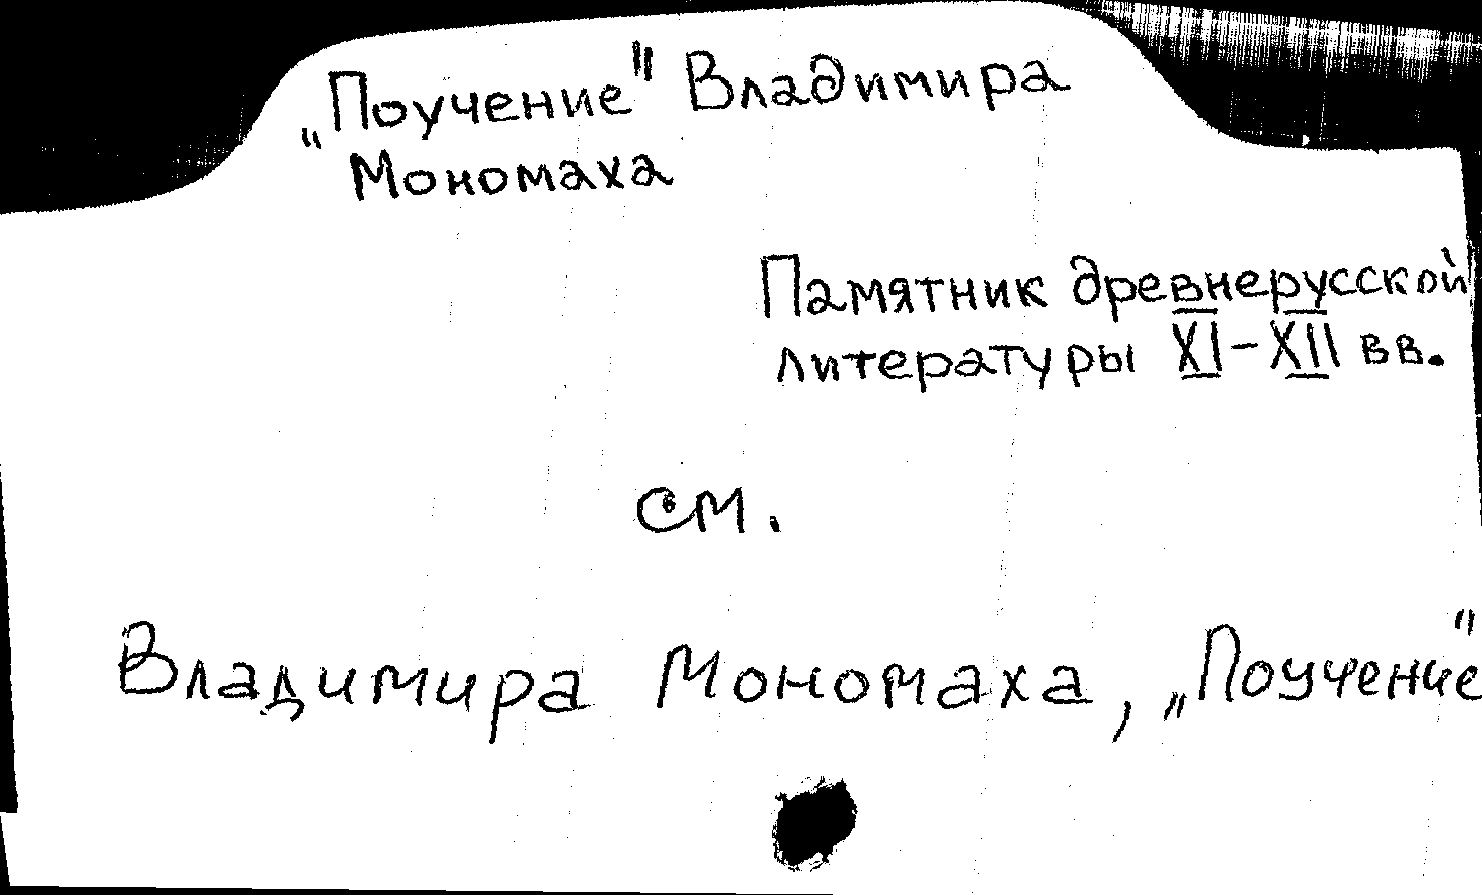 „Поучение" Владимира
Мономаха
Памятник древнерусской
литературы XI-XII вв.
см.
Владимира Мономаха, „Поучение"